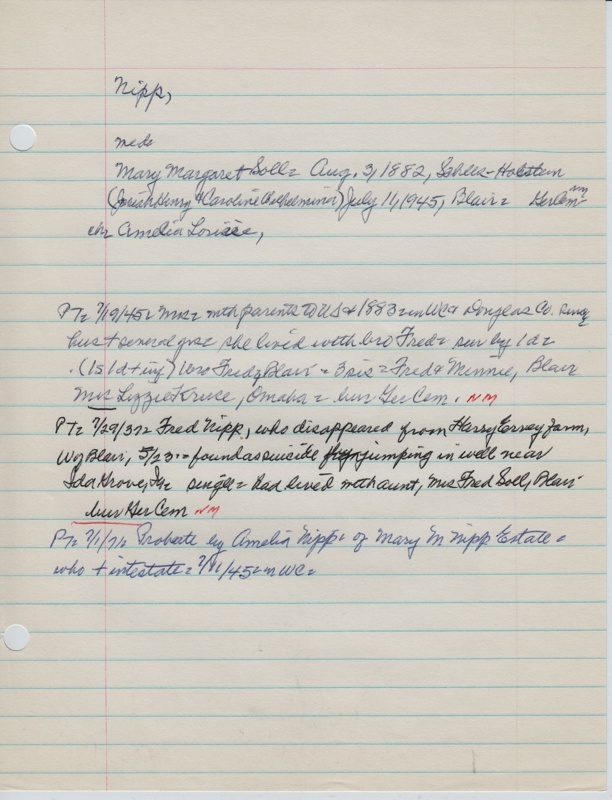 Nipp,
med=
Mary Margaret Soll= Aug. 3, 1882, Schles-Holstein
(Josiah Henry & Caroline Wilhelmina) July 11, 1945, Blair= GerCem- nm
ch= Amelia Louise,
PT= 7/19/45= Mrs= mth parents to US & 1883= in WC & Douglas Co. since
hus + several yrs= she lived with bro Fred= sur by 1d=
(1s 1d + inf) 1bro Fred, Blair = 3sis = Fred & Minnie, Blair
Mrs Lizzie Kruse, Omaha = bur Ger Cem. NM
PT= 7/29/37= Fred Nipp, who disappeared from Harry farm,
W of Blair, 5/23 = found as suicide jumping in well near
Ida Grove, Ia= single= had lived with aunt, Mrs Fred Soll, Blair
bur Ger Cem NM
PT= 7/1/71= Probate by Amelia Nipp= of Mary M Nipp Estate=
who + intestate= 7/11/45= in WC=